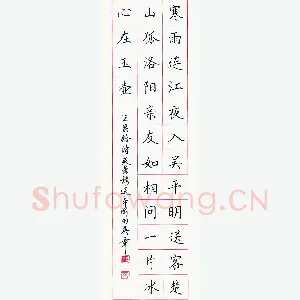 寒雨连江夜入吴平明送客楚
山孤洛阳亲友如相问一片冰
心在玉壶
王昌龄诗芙蓉楼送辛渐
Shufawang.CN